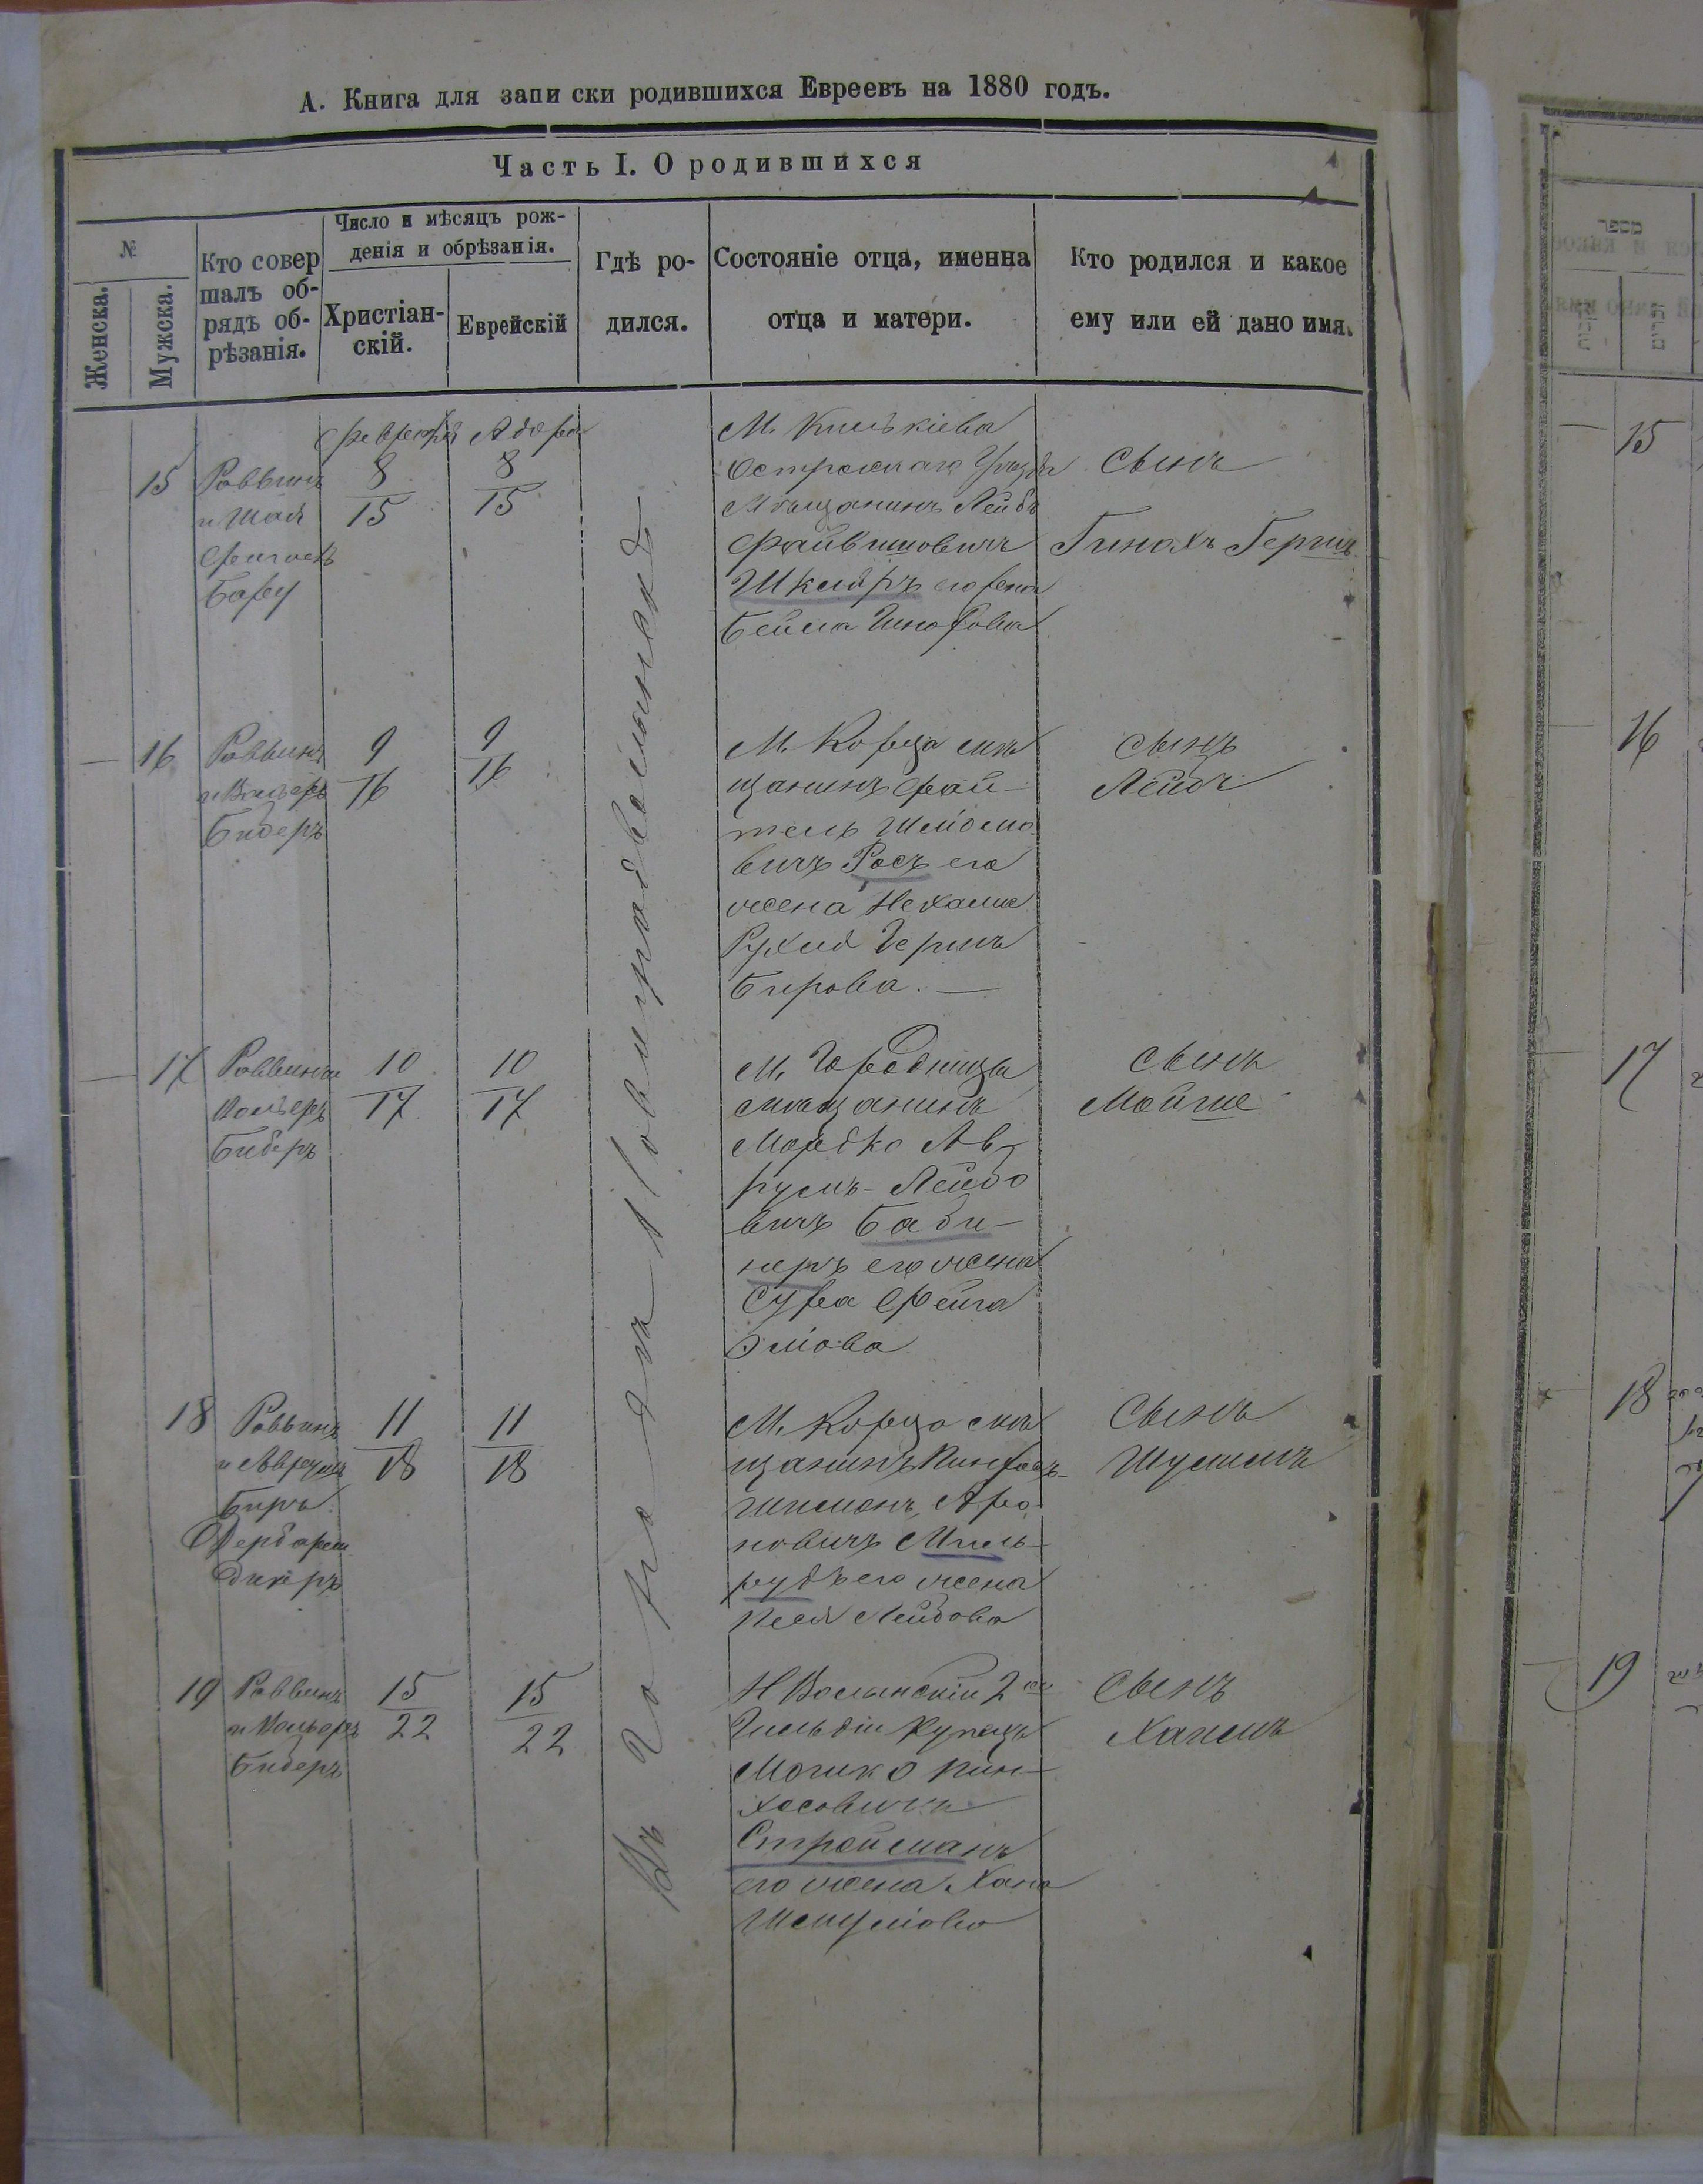 А. Книга для запи ски родившихся Евреевъ на 1880 годъ.
Часть I. О родившихся
№
Женска.
Мужска.
Кто совер
шалъ об-
рядъ об-
рѣзанія.
Число и мѣсяцъ рож-
денія и обрѣзанія.
Христіан-
скій.
Еврейскій
Гдѣ ро-
дился.
Состояніе отца, именна
отца и матери.
Кто родился и какое
ему или ей дано имя.
Въ городѣ Новоградволынскѣ
15
Раввинъ
и Шая
Февраля
8
15
Адора
8
15
М.
Острожскаго Уѣзда
Мѣщанинъ Лейбъ
Файвишовичъ
Шкляръ его жена
Бейла
Сынъ
Гинохъ Гершъ
— 16
Раввинъ
и Вольфъ
Бидеръ
9
16
9
16
М. Корца мѣ
щанинъ Фай-
тель Шлйомо
вичъ Росъ его
жена Нехама
Рухля Гершъ
Берова. —
Сынъ
Лейбъ
— 17
Раввинъ и
Вольфъ
Бидеръ
10
17
10
17
М. Городницы
мѣщанинъ
Мордко Ав-
румъ-Лейбо
вичъ Баби-
неръ его жена
Сура Фейга
Сынъ
Мойше
18
Раввинъ
и Аврумъ
Беръ
11
18
11
18
М. Корца мѣ
щанинъ Пинхасъ-
Шимонъ Аро-
новичъ Миль-
рудъ его жена
Песя Лейбова
Сынъ
Шулимъ
19
Раввинъ
и Вольфъ
Бидеръ
15
22
15
22
Н Волынскій 2ой
Гильдіи Купецъ
Мошко Пин-
хосовичъ
Стройманъ
его жена Хана
Шмулiова
Сынъ
Хаимъ
מספר
15
16
17
18
19